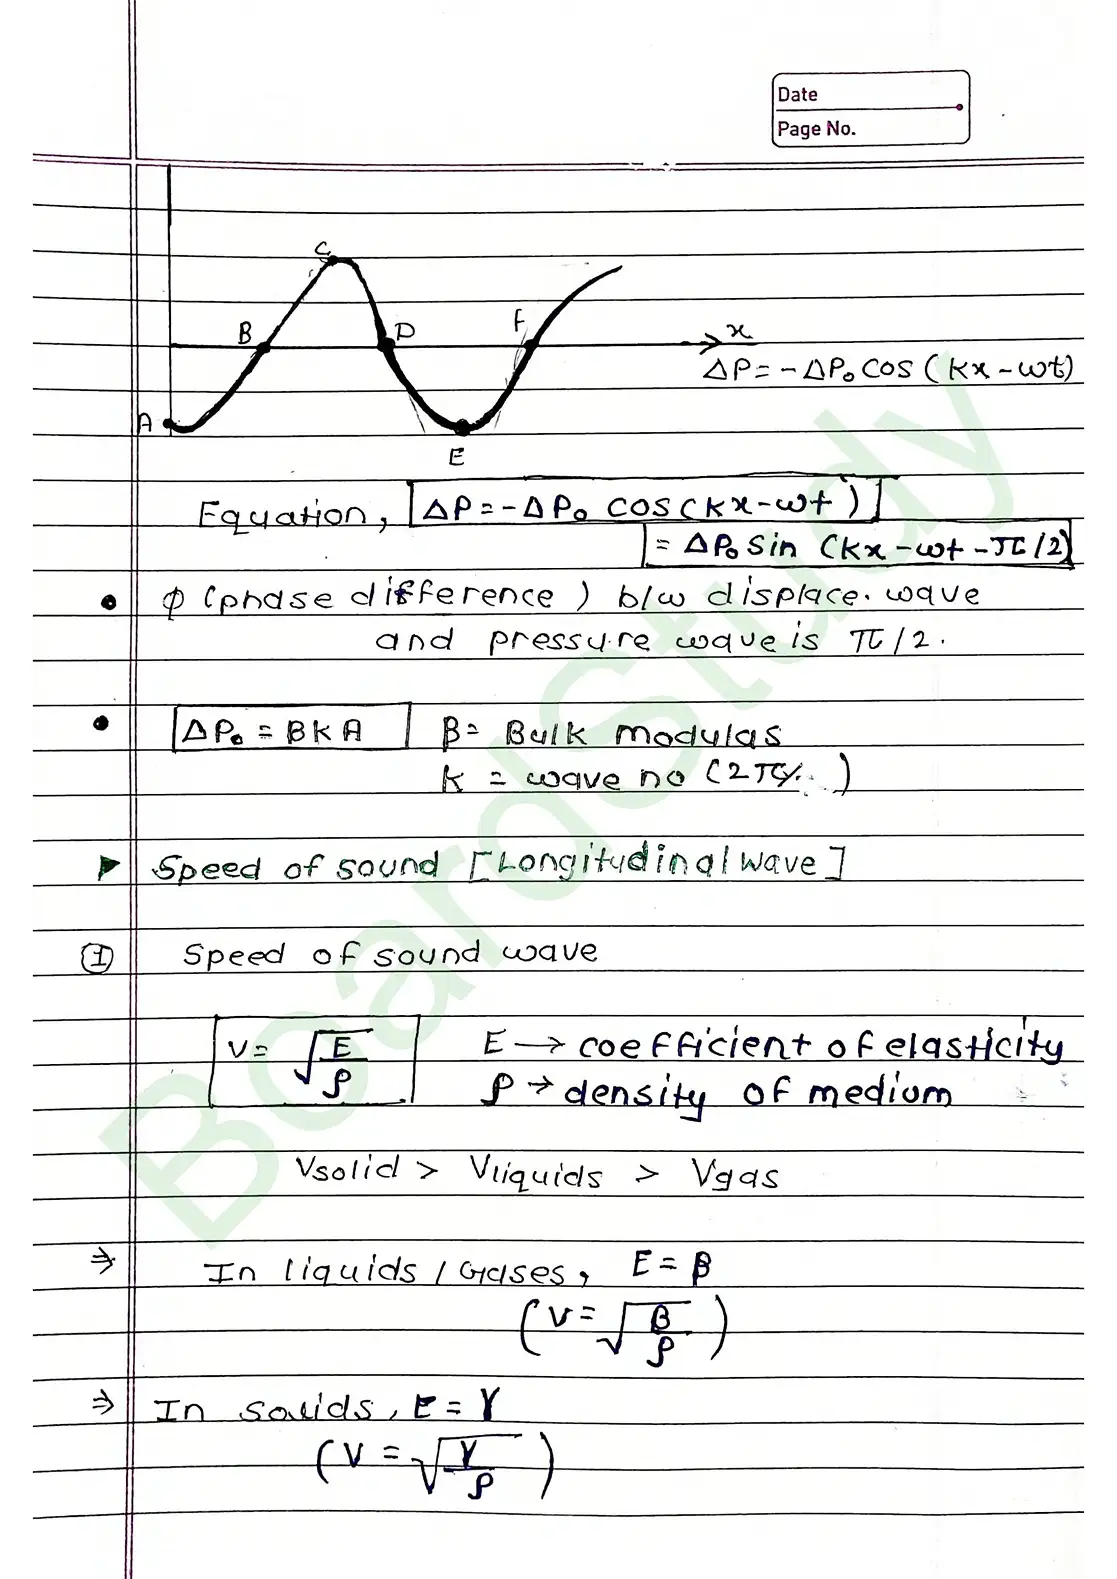 Date
Page No.
C
B
D
F
x
ΔP = -ΔP₀ cos (kx - ωt)
A
E
Equation, ΔP = -ΔP₀ cos(kx - ωt)
= ΔP₀ sin (kx - ωt - π/2)
• φ (phase difference) b/w displace. wave
and pressure wave is π/2.
• ΔP₀ = BKA B = Bulk modulas
k = wave no (2π/
▶ Speed of sound [Longitudinal wave]
① Speed of sound wave
v = √(E/ρ) E → coefficient of elasticity
ρ → density of medium
Vsolid > Vliquids > Vgas
⇒ In liquids / Gases, E = β
(v = √(β/ρ))
⇒ In solids, E = Y
(V = √(Y/ρ))
BoardStudy